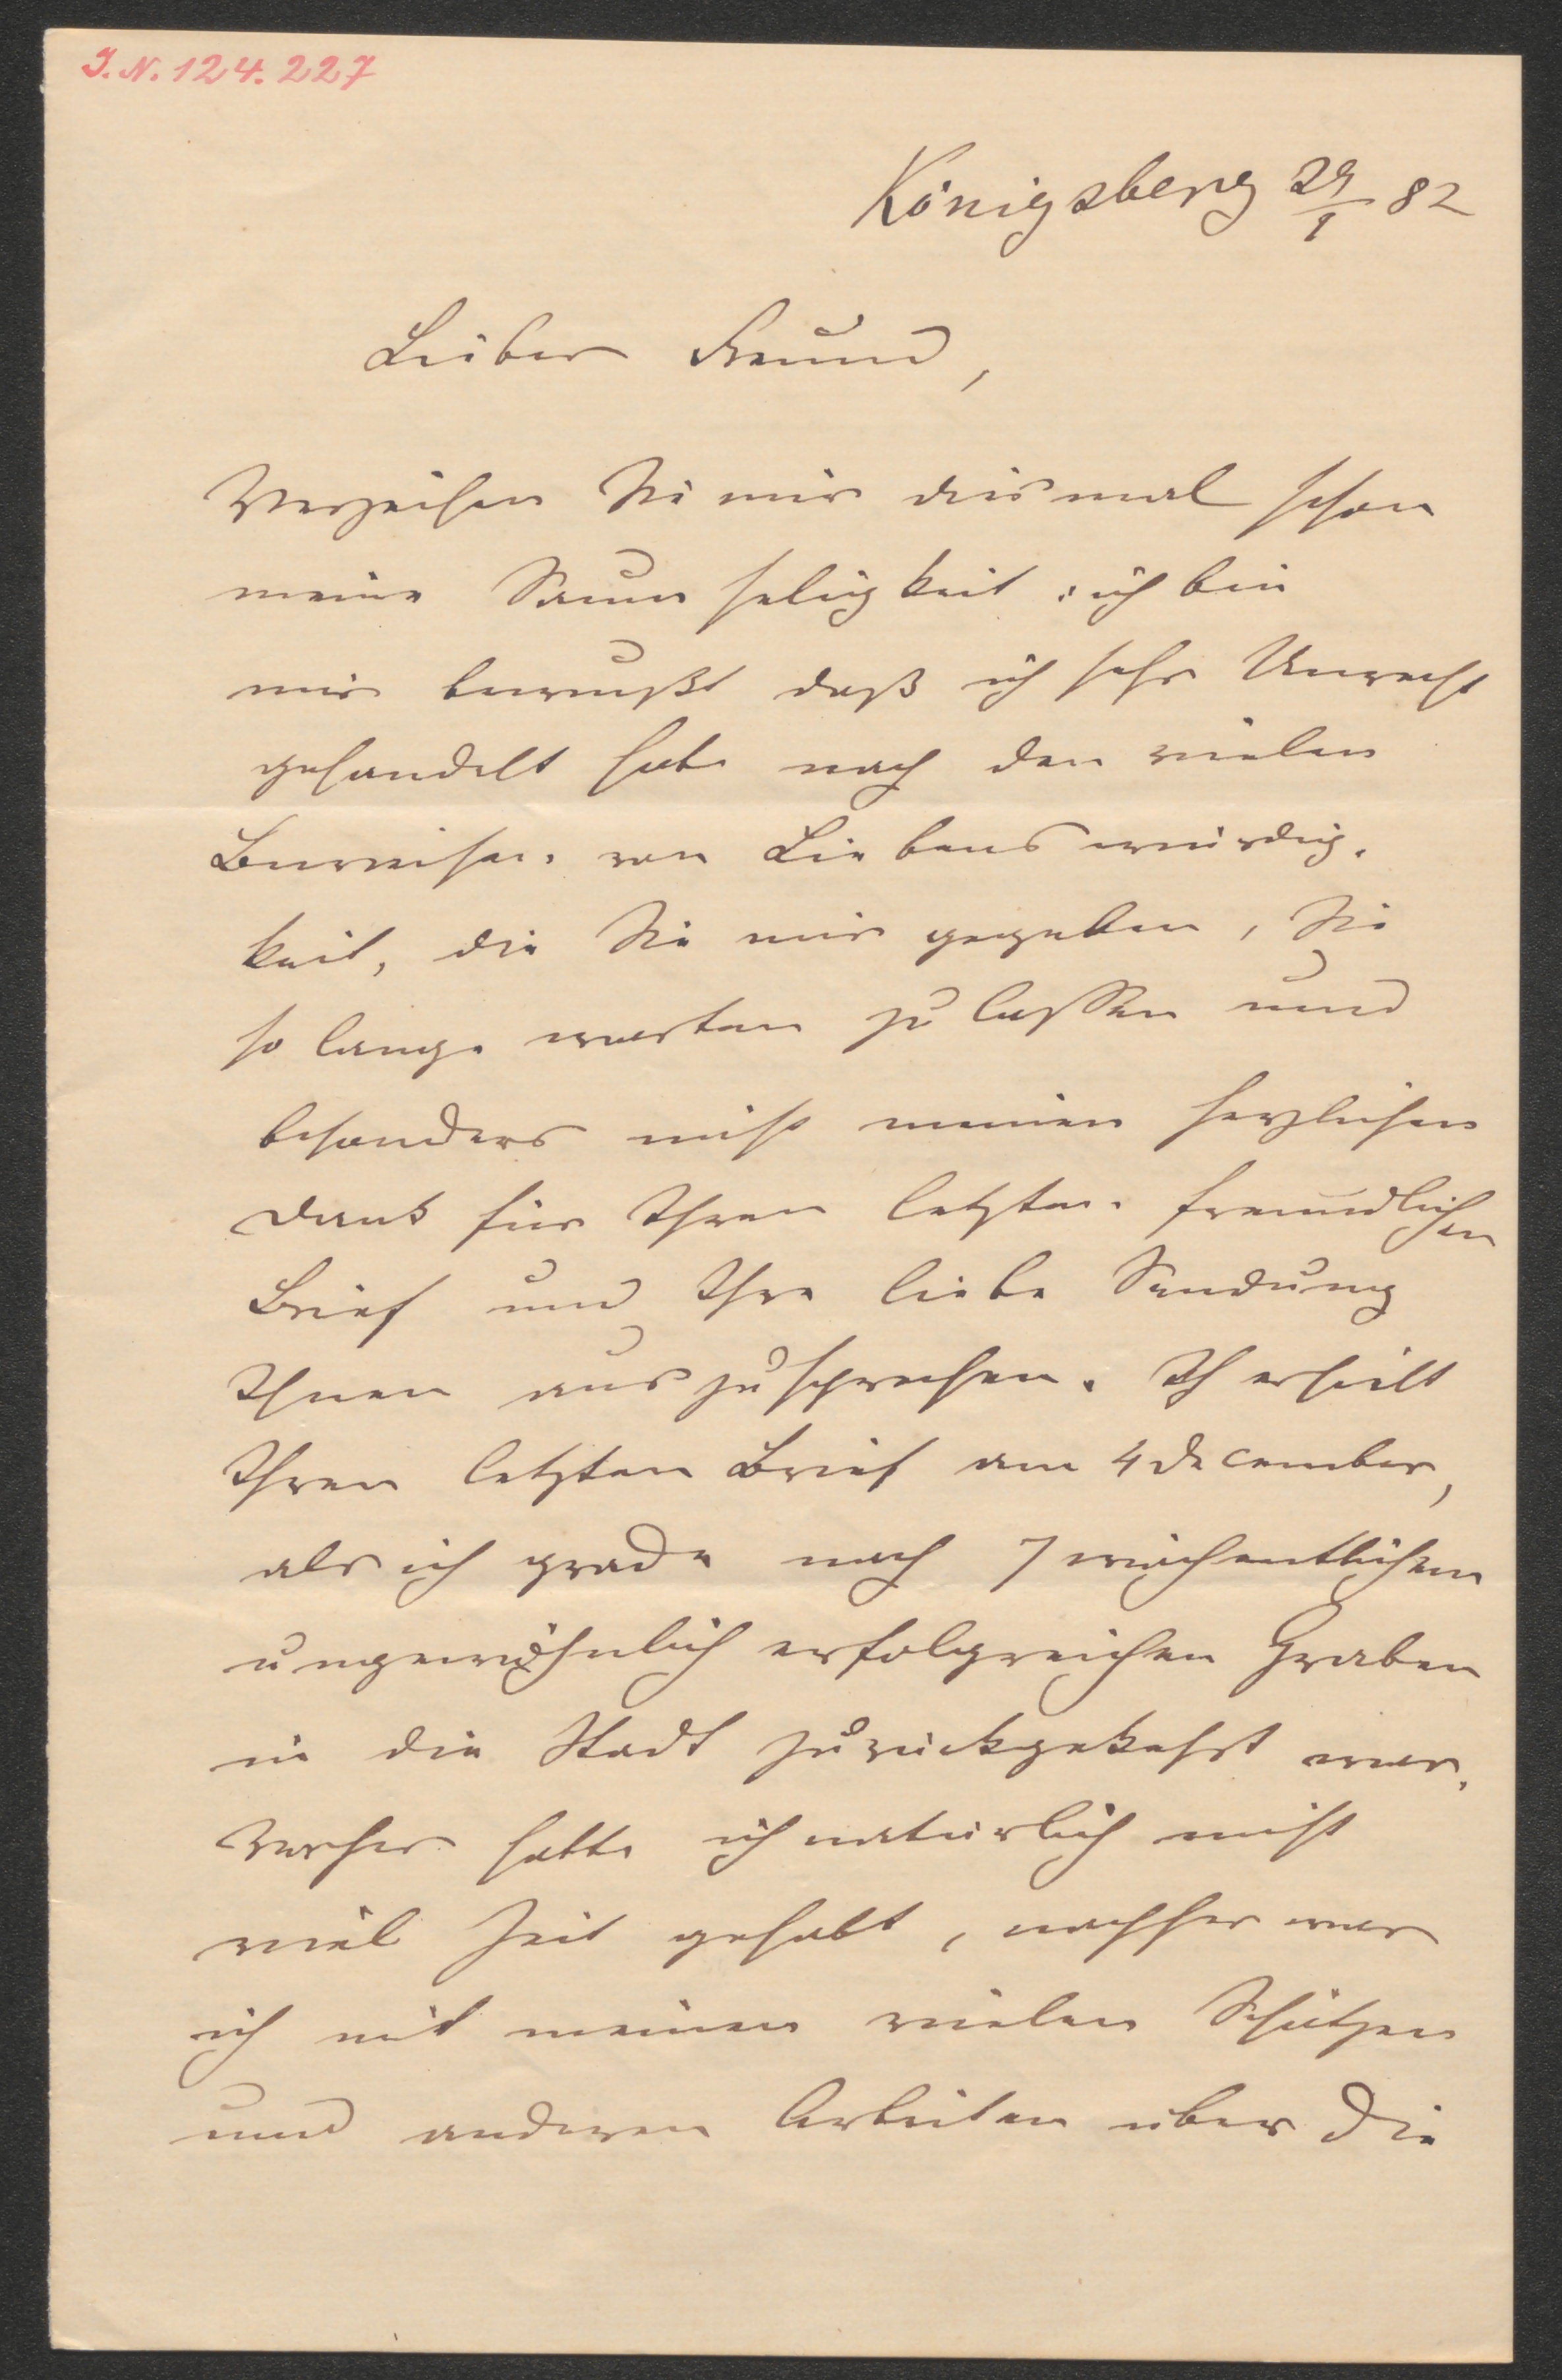 J.N. 124.227
Königsberg 29/1 82
Lieber Freund,
Verzeihen Sie mir diesmal schon
meine Saumseligkeit: ich bin
mir bewußt daß ich sehr Unrecht
gehandelt habe nach den vielen
Beweisen von Liebenswürdig-
keit, die Sie mir gegeben, Sie
so lange warten zu lassen und
besonders nicht meinen herzlichen
Dank für Ihren letzten freundlichen
Brief und Ihre liebe Sendung
Ihnen auszusprechen. Ich erhielt
Ihren letzten Brief am 4 December,
als ich grade nach 7 wöchentlichem
ungewöhnlich erfolgreichen Graben
in die Stadt zurückgekehrt war.
Vorher hatte ich natürlich nicht
viel Zeit gehabt, nachher war
ich mit meinen vielen Schätzen
und anderen Arbeiten über die